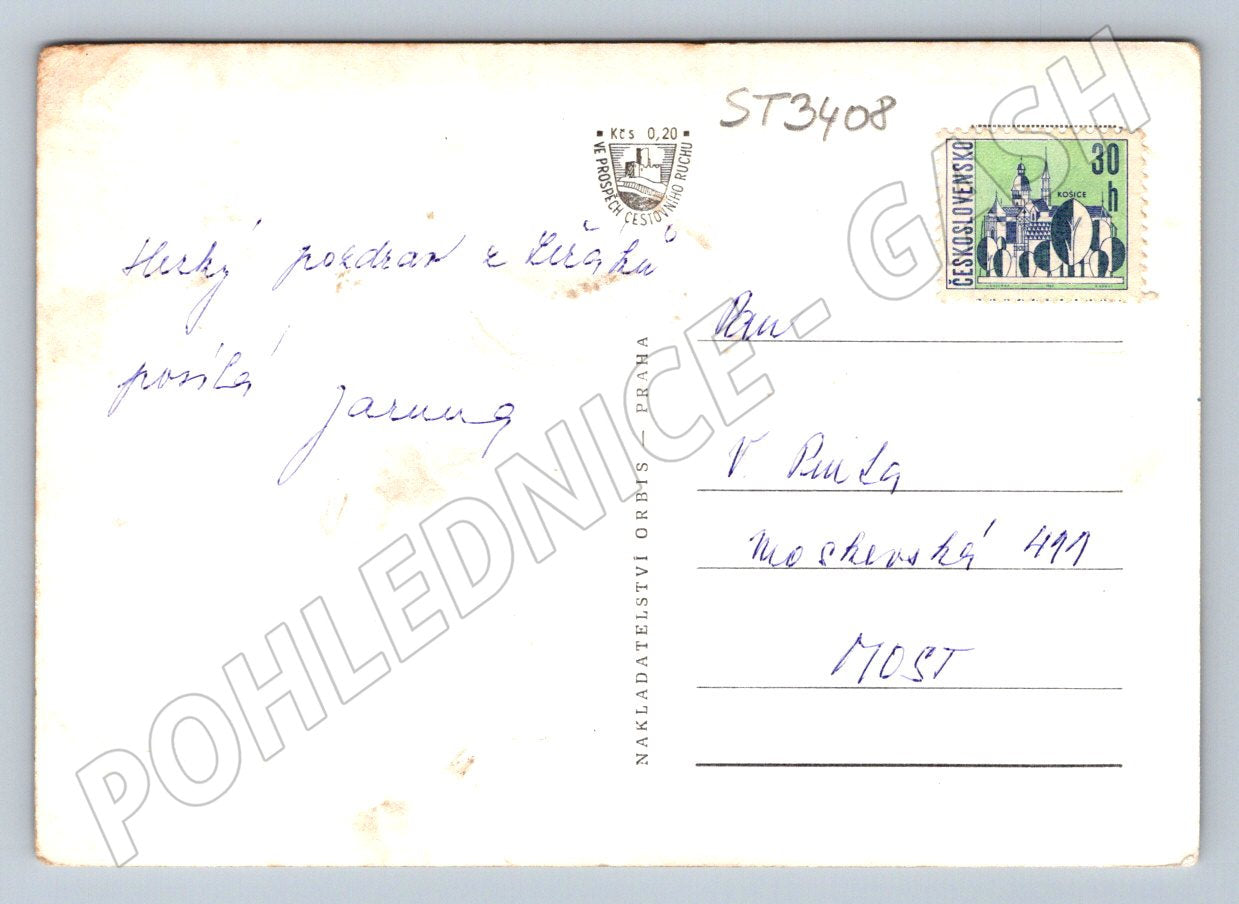 ST3408
Kčs 0,20
VE PROSPĚCH CESTOVNÍHO RUCHU
ČESKOSLOVENSKO
30 h
KOŠICE
pozdrav z
posílá
Jarmila
NAKLADATELSTVÍ ORBIS — PRAHA
Pan
V.
Moskevská 411
MOST
POHLEDNICE - GASH